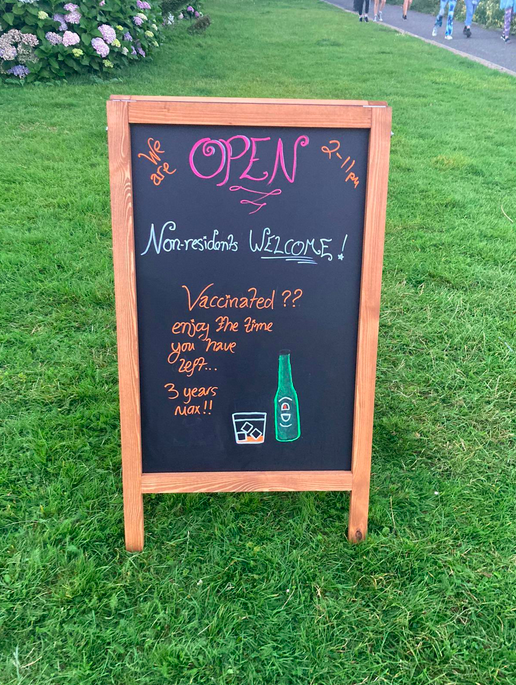 We are
OPEN
2-11pm
Non-residents WELCOME!
Vaccinated ??
enjoy the time
you have
left...
3 years
max!!